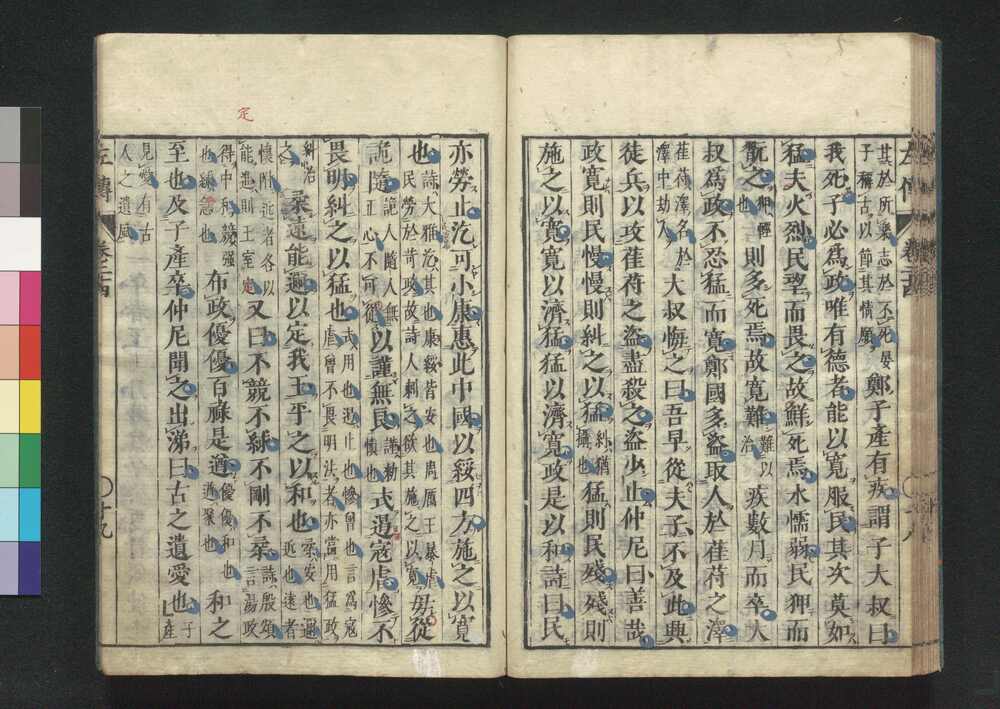 其於所樂志於不死晏
子稱古以節其情願
鄭子產有疾謂子大叔曰
我死子必爲政唯有德者能以寬服民其次莫如
猛夫火烈民望而畏之故鮮死焉水懦弱民狎而
翫之狎輕也則多死焉故寬難難以治疾數月而卒大
叔爲政不忍猛而寬鄭國多盜取人於萑苻之澤
萑苻澤名於
澤中劫人
大叔悔之曰吾早從夫子不及此興
徒兵以攻萑苻之盜盡殺之盜少止仲尼曰善哉
政寬則民慢慢則糾之以猛糾猶攝也猛則民殘殘則
施之以寬寬以濟猛猛以濟寬政是以和詩曰民
亦勞止汔可小康惠此中國以綏四方施之以寬
也詩大雅汔其也康綏皆安也周厲王暴虐
民勞於苛政故詩人刺之欲其施之以寬
毋從
詭隨詭人隨人無
正心不可從
以謹無良謹勑愼也式遏寇虐慘不
畏明糾之以猛也式用也遏止也慘曾也言爲寇
虐曾不畏明法者亦當用猛政
糾治之
柔遠能邇以定我王平之以和也柔安也邇
近也遠者
定
懷附近者各以
能進則王室定
又曰不競不絿不剛不柔詩殷頌
言湯政
得中和競強
也絿急也
布政優優百祿是遒優優和也
遒聚也
和之
至也及子產卒仲尼聞之出涕曰古之遺愛也子產
見愛有古
人之遺風
左傳
十九